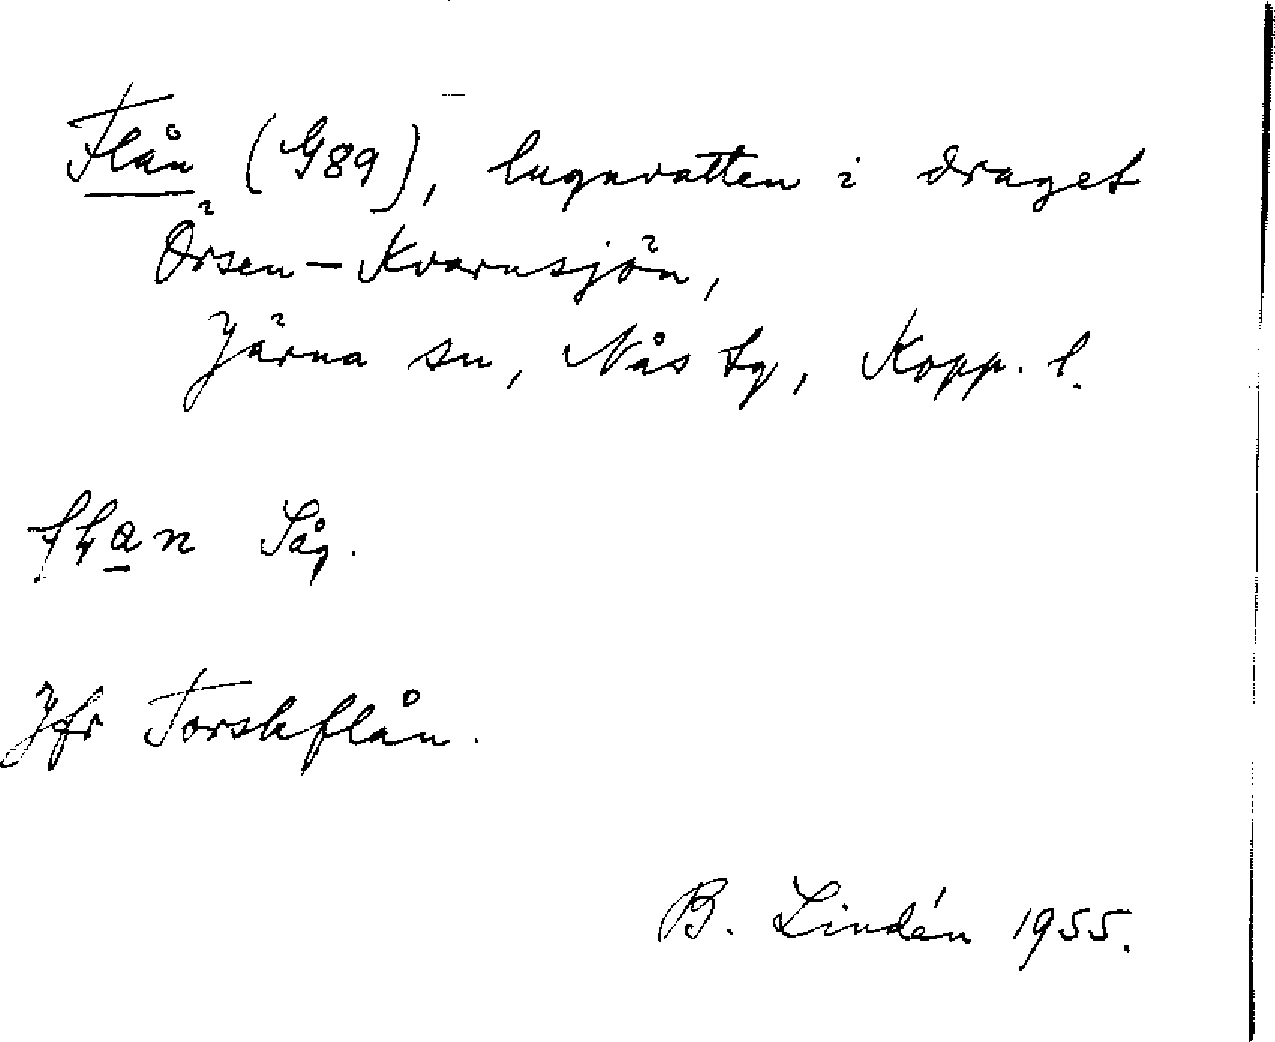 Flån (G89), lugnvatten i draget
Örsen – Kvarnsjön,
Järna sn, Nås tg, Kopp. l.
Såg.
Jfr Torskflån.
B. Lindén 1955.